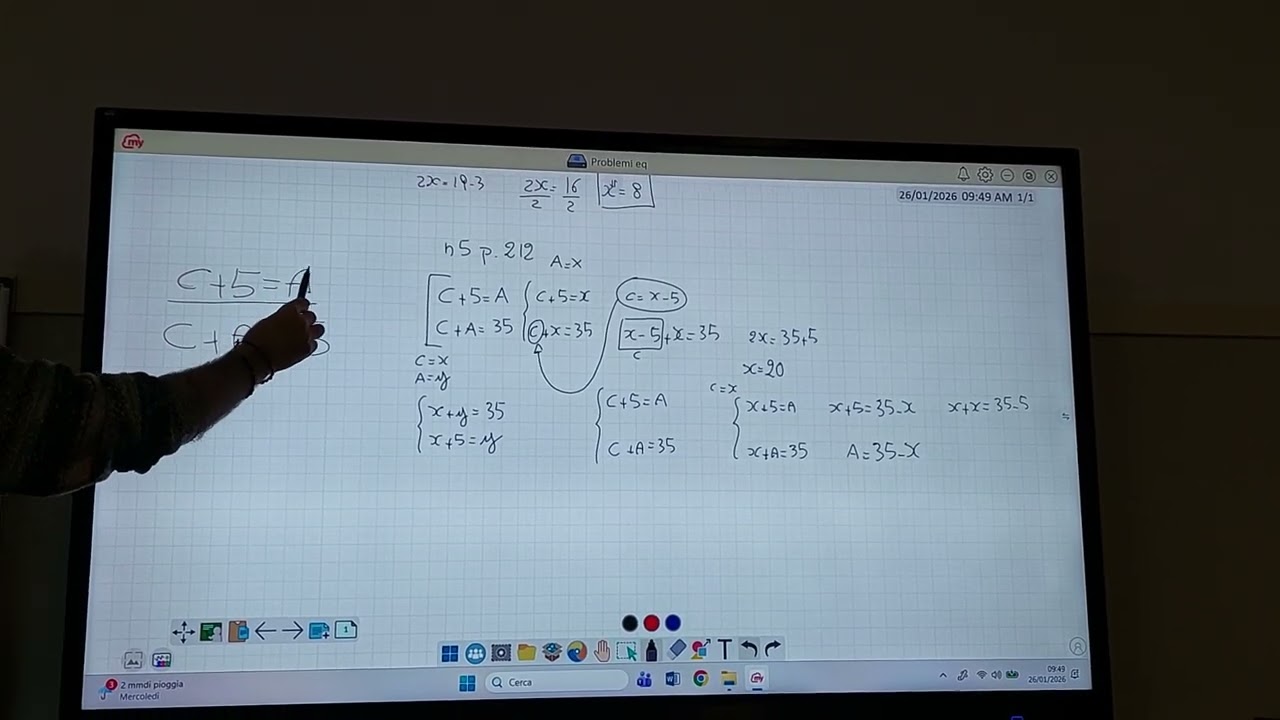 my
Problemi eq
26/01/2026 09:49 AM 1/1
2x=19-3
2x/2 = 16/2
x=8
n5 p. 212
A=x
C+5=A
C+A=35
C+5=x
C+x=35
C=x-5
x-5+x=35
C
2x=35+5
x=20
C=x
A=y
x+y=35
x+5=y
C+5=A
C+A=35
C=x
x+5=A
x+A=35
x+5=35-x
A=35-x
x+x=35-5
C+5=A
C+
1
T
3
2 mmdi pioggia
Mercoledì
Cerca
09:49
26/01/2026